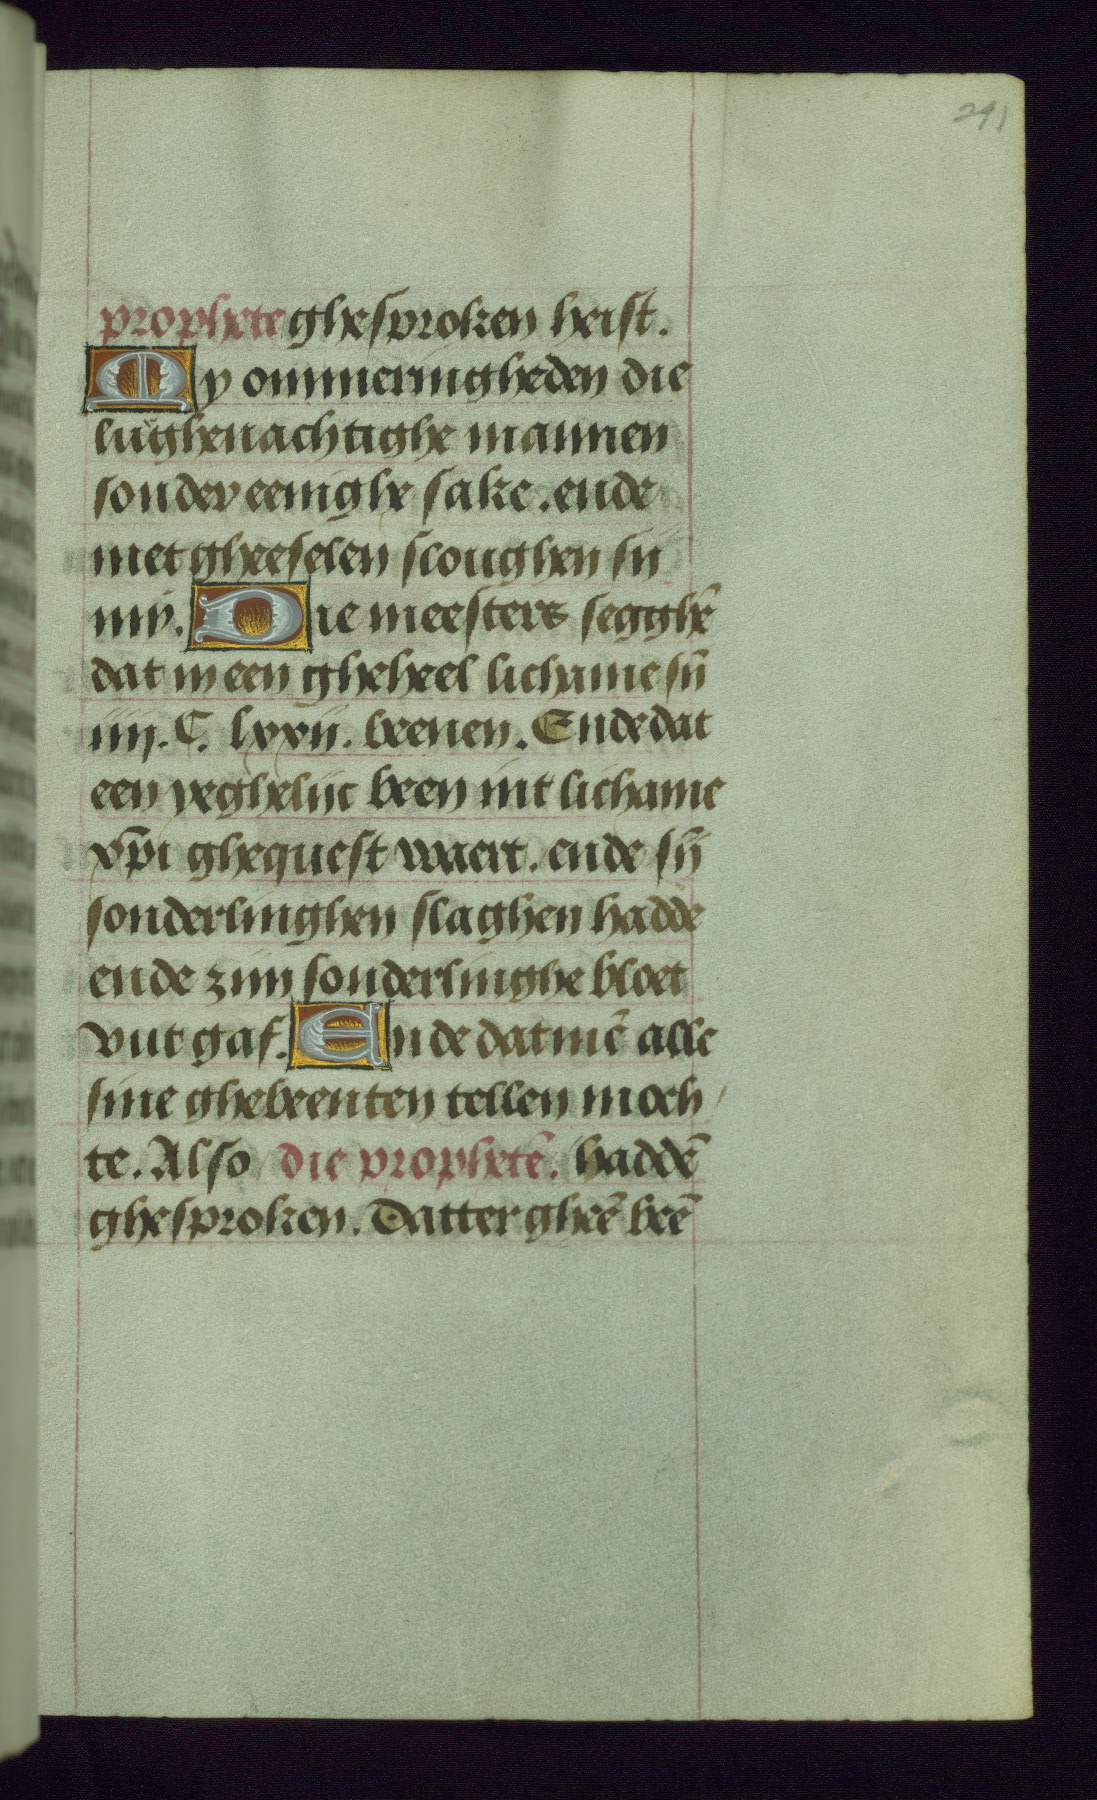 291
prophete ghesproken heist.
My ommeringheden die
lueghenachtighe mannen
sonder eenighe sake. ende
met gheeselen sloughen sij
mij. Die meesters segghē
dat in een gheheel lichame sij̄
iiij. C. lxxij. beenen. Ende dat
een yeghelijc been int lichame
xp̄i ghequest waert. ende sij̄
sonderlinghen slaghen hadde
ende zijn sonderlinghe bloet
vut gaf. Ende dat mē alle
sine ghebeenten tellen moch
te. Also die prophetē. haddē
ghesproken. Datter gheē beē